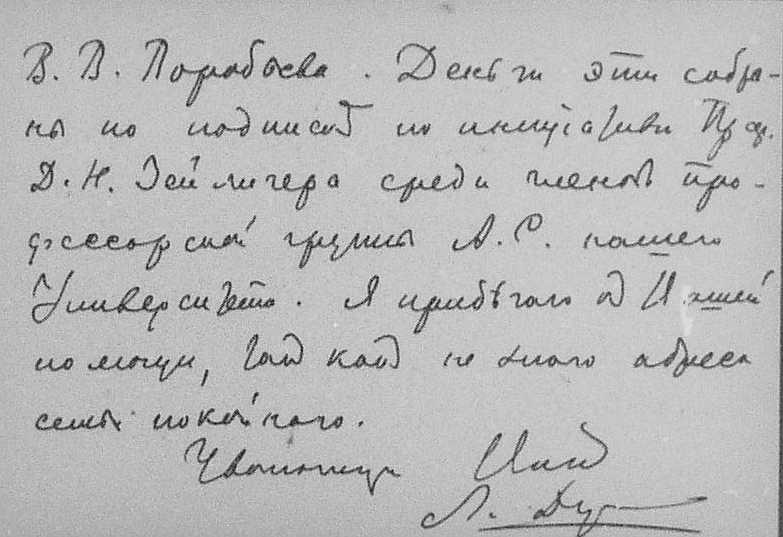 В. В. Воробьева. Деньги эти собра-
ны по подписке по инициативе Проф.
Д. Н. Зейлигера среди членов про-
фессорской группы А. С. нашего
Университета. Я прибѣгаю к Вашей
помощи, так как не знаю адреса
семьи покойного.
Уважающий Вас
Л.